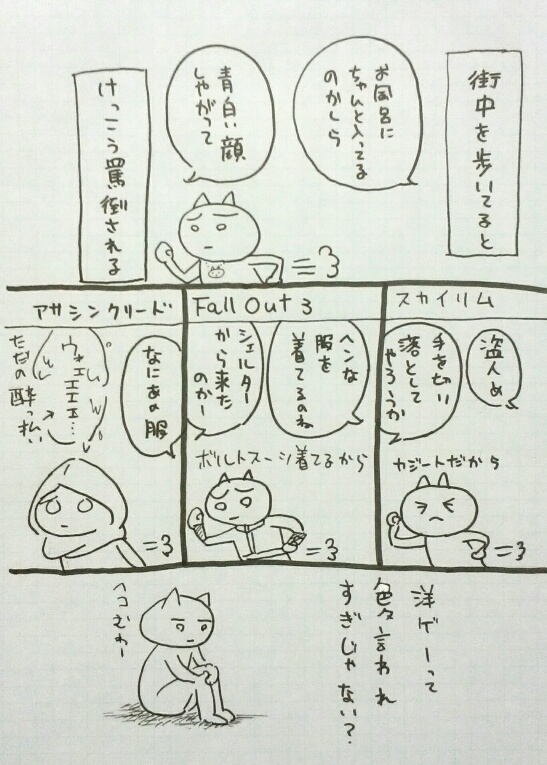 街中を歩いてると
お風呂に
ちゃんと入ってる
のかしら
青白い顔
しやがって
けっこう罵倒される
スカイリム
盗人め
手を切り
落として
やろうか
カジートだから
Fall Out 3
ヘンな
服を
着てるのね
シェルター
から来た
のかー
ボルトスーツ着てるから
アサシンクリード
なにあの服
ウォェエエエ…
ただの酔っ払い
洋ゲーって
色々言われ
すぎじゃない？
ヘコむわー